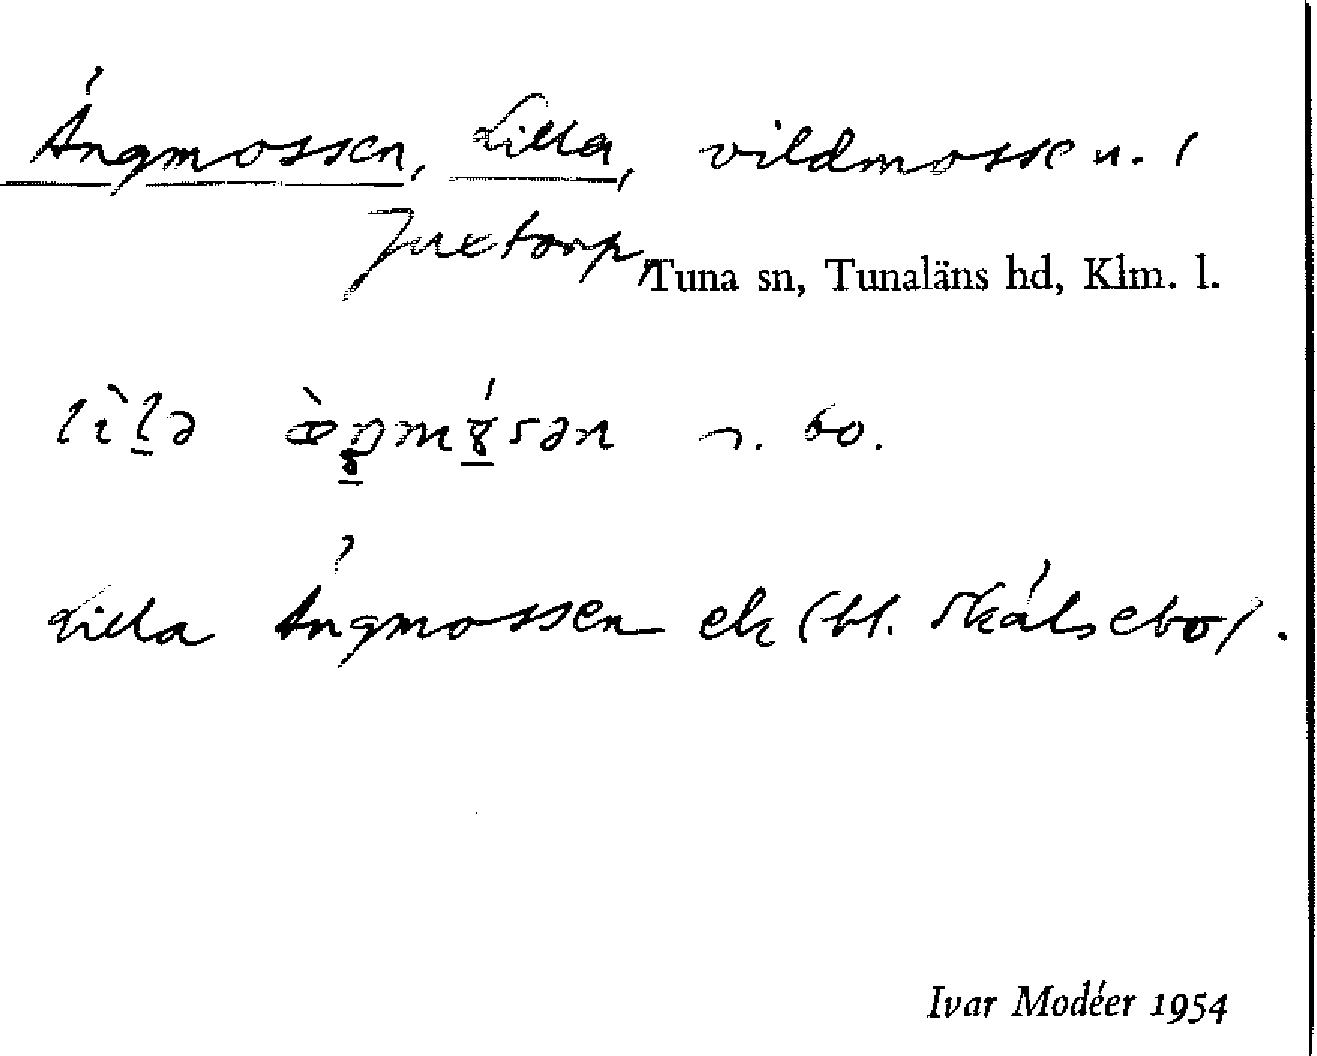 Ängmossen, Lilla, vildmosse n. i
Juxtorp, Tuna sn, Tunaläns hd, Klm. l.
n. bo.
Lilla Ängmossen ek (bl. Skálsebo).
Ivar Modéer 1954